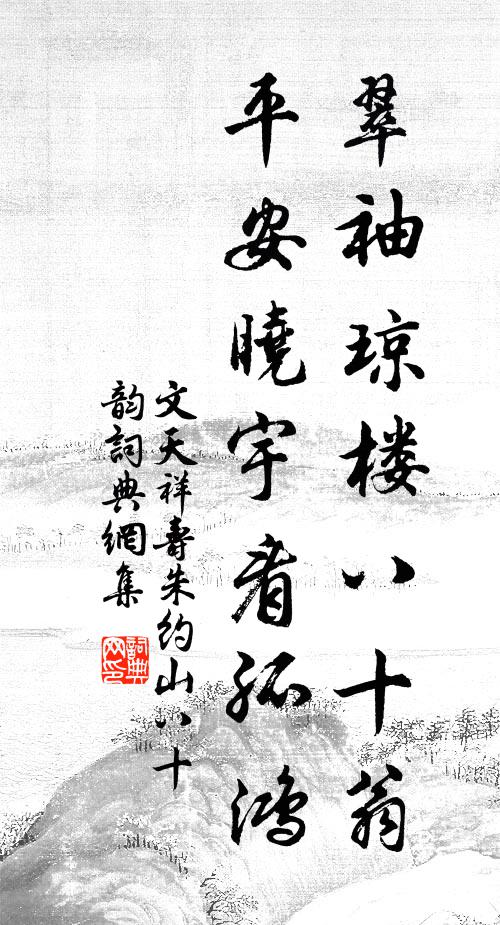 翠袖琼楼八十翁
平安曉宇看孤鸿
文天祥壽朱约山八十
韵詞典網集
詞典網印